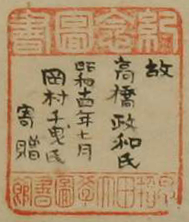 紀念圖書
故
高橋政和氏
昭和十四年七月
岡村千曳氏
寄贈
早稻田大學圖書館